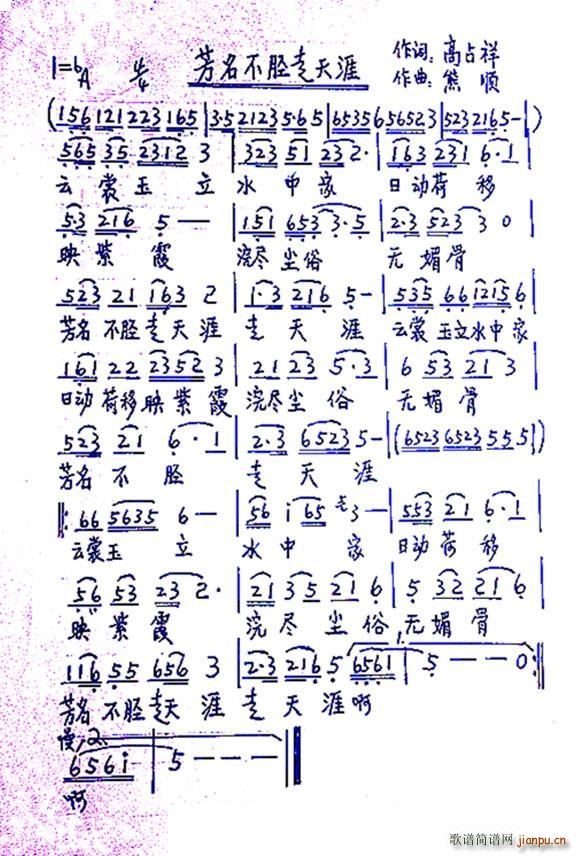 1=♭A 4/4 芳名不胫走天涯 作词:高占祥
作曲:熊 顺
(156 121223165|3·521235·65|65356 656523|5232165-|)
565 35 2312 3 |323 51 232·|163 231 6·1
云裳玉 立 水中家 日动荷移
5·3 216 5 — —|151 653 3·5|2·3 523 3 0
映紫霞 浣尽尘俗 无媚骨
523 21 163 2|1·3 216 5—|535 66 12156
芳名不胫走天涯 走天涯 云裳玉立水中家
161 22 2352 3|21 23 5·3|6 53 21 3
日动荷移映紫霞 浣尽尘俗 无媚骨
523 21 6·1|2·3 6523 5—|(6523 6523 5 5 5|)
芳名不胫 走天涯
‖:66 5635 6—|56 i 65 3—|553 21 6·1
云裳玉 立 水中 家 日动荷移
56 53 23 2·|21 35 21 6|5 32 21 6
映紫霞 浣尽尘俗 无媚骨
1.
116 55 656 3|2·3 216 5 6561|5 — — 0:‖
芳名不胫走天涯 走天涯 啊
慢 2.
656i|5 — — —‖
啊
歌谱简谱网
jianpu.cn